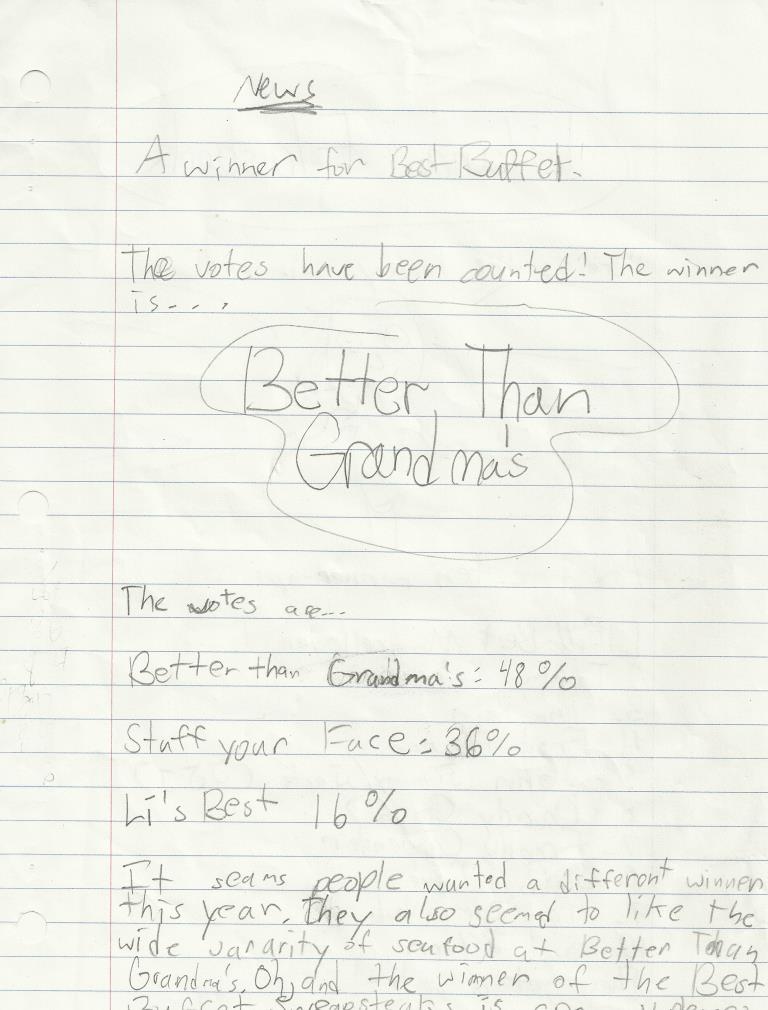 News
A winner for Best Buffet.
The votes have been counted! The winner
is....
Better Than
Grandma's
The votes are...
Better than Grandma's: 48%
Stuff your Face: 36%
Li's Best 16%
It seams people wanted a different winner
this year. They also seemed to like the
wide vanarity of seafood at Better Than
Grandma's. Oh, and the winner of the Best